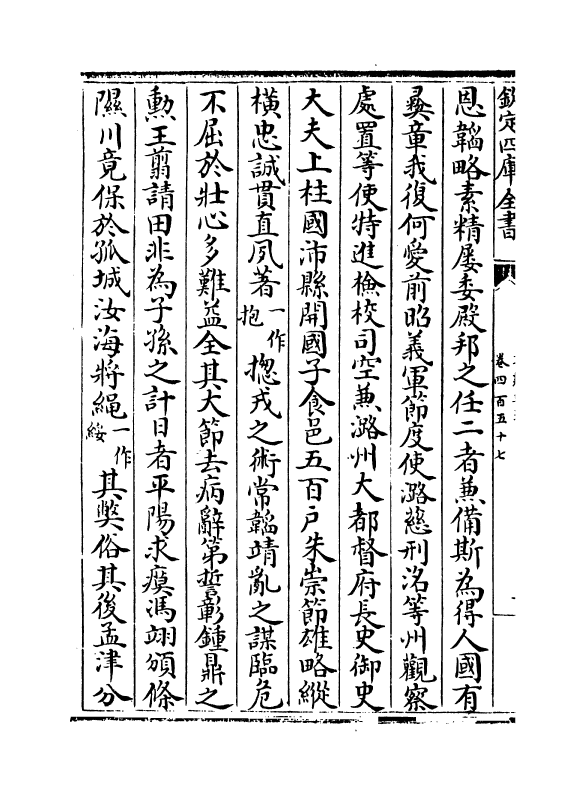 欽定四庫全書
卷四百五十七
恩韜略素精屡委殿邦之任二者兼備斯為得人國有
彛章我復何愛前昭義軍節度使潞慈刑洺等州觀察
處置等使特進檢校司空兼潞州大都督府長史御史
大夫上柱國沛縣開國子食邑五百户朱崇節雄略縱
橫忠誠貫直夙著一作抱揔戎之術常韜靖亂之謀臨危
不屈於壯心多難益全其大節去病辭第誓彰鍾鼎之
勲王翦請田非為子孫之計日者平陽求瘼馮翊頒條
隰川竟保於孤城汝海將繩一作綏其獘俗其後孟津分